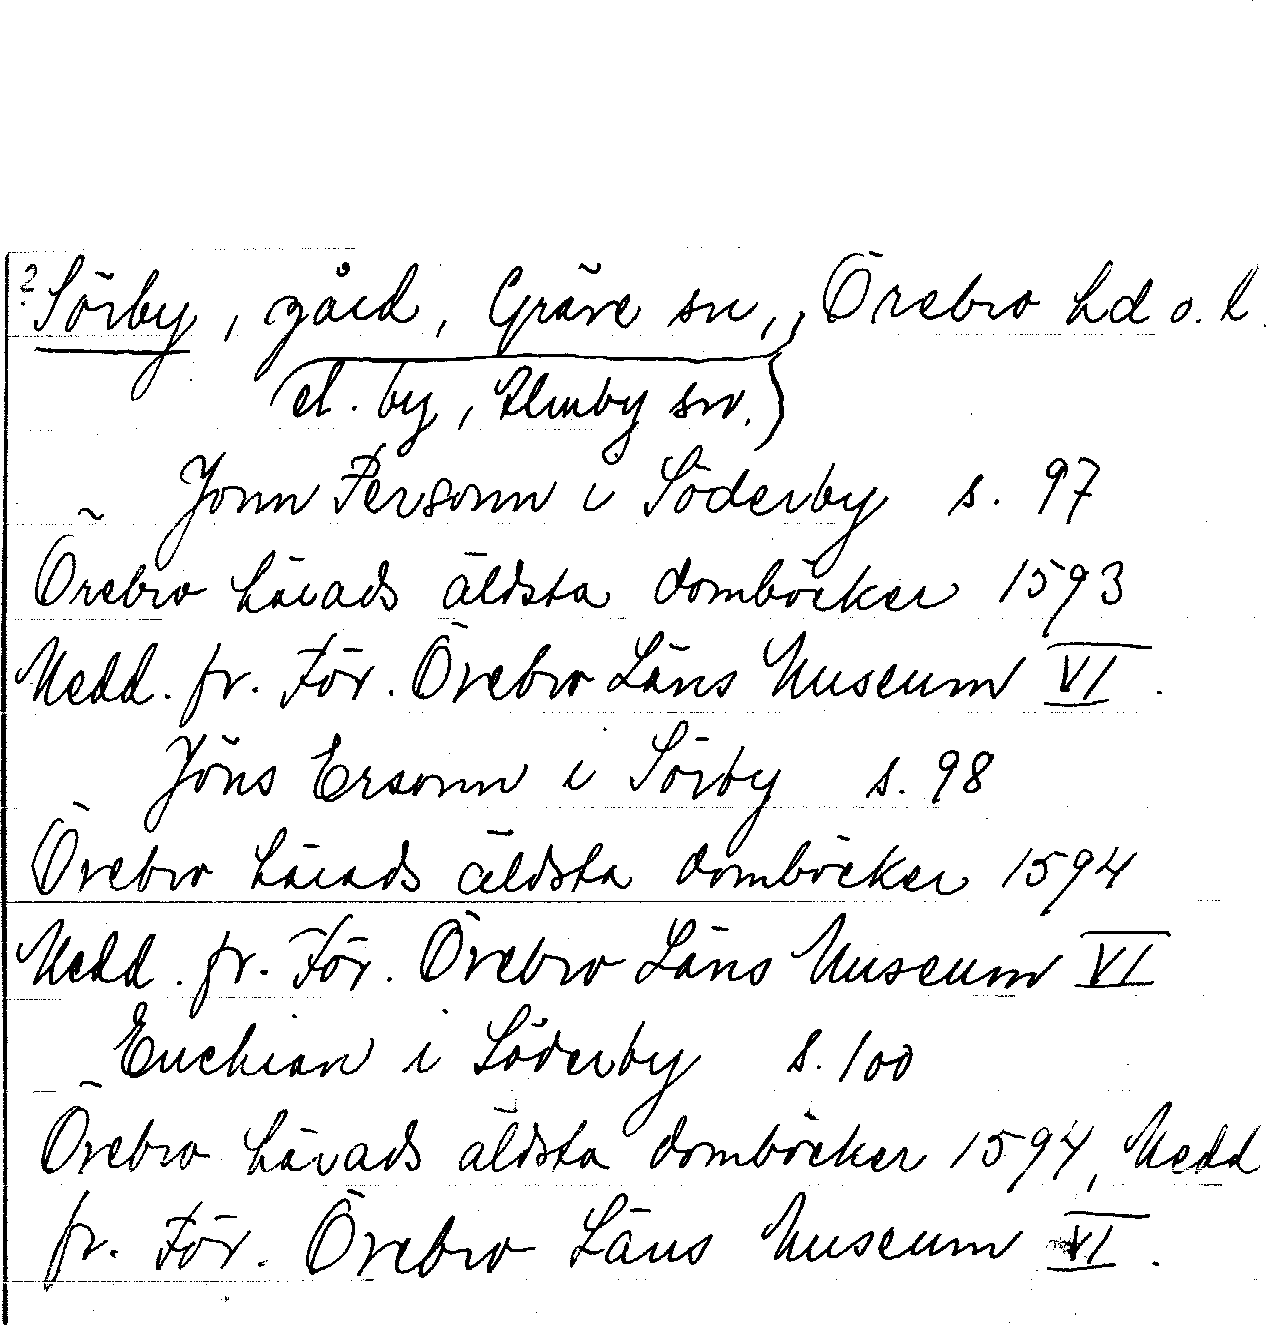 ? Sörby, gård, Gräve sn, Örebro hd o. l.
(el. by, Almby sn.)
Jonn Personn i Söderby s. 97
Örebro härads äldsta domböcker 1593
Medd. fr. För. Örebro Läns Museum VI.
Jöns Ersonn i Sörby s. 98
Örebro härads äldsta domböcker 1594
Medd. fr. För. Örebro Läns Museum VI
i Söderby s. 100
Örebro härads äldsta domböcker 1594, Medd
fr. För. Örebro Läns Museum VI.